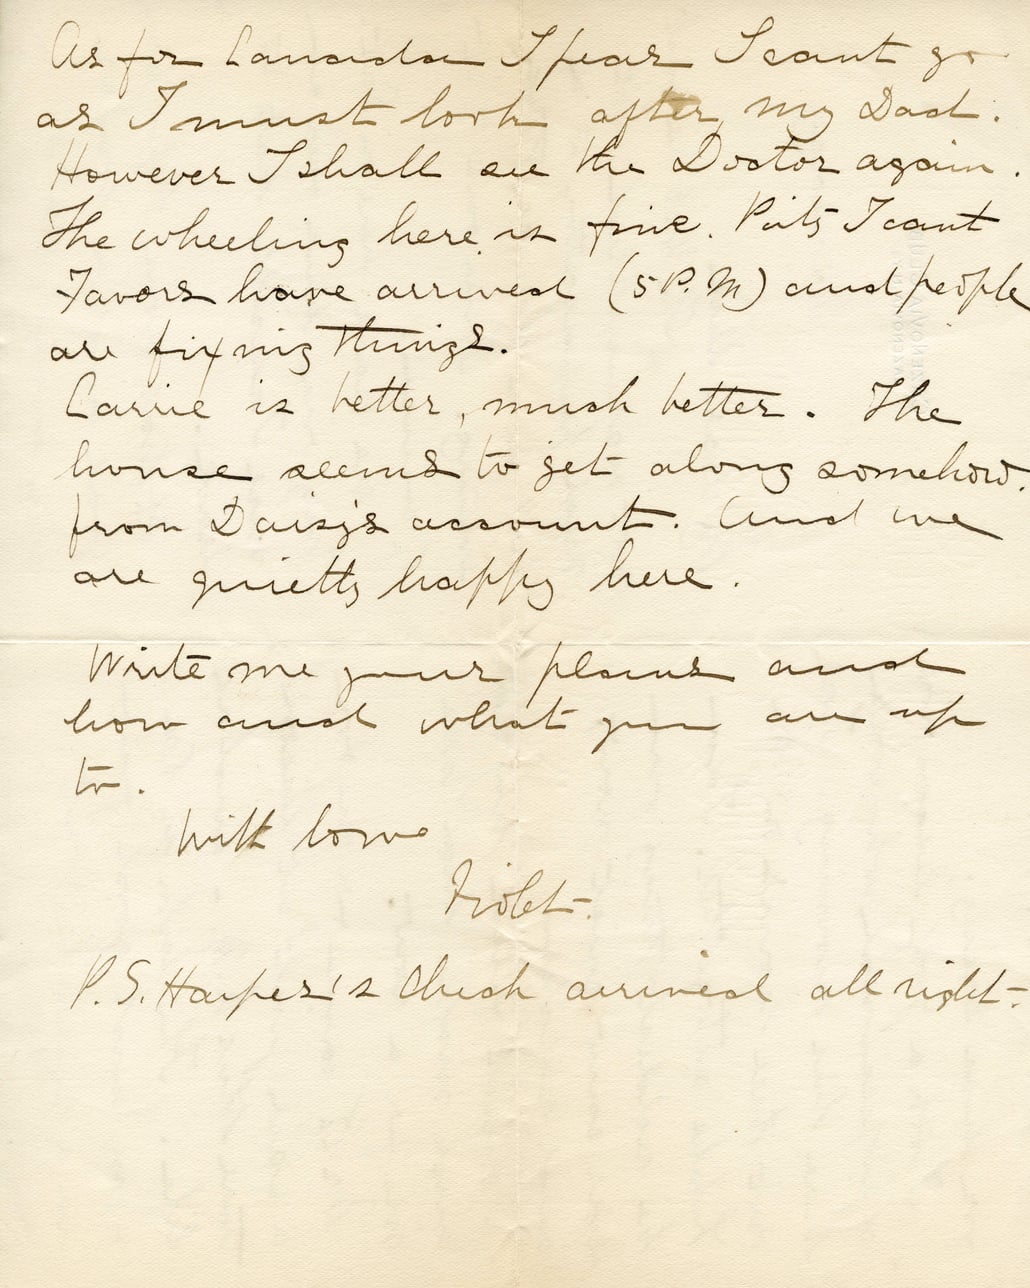 As for Canada I fear I cant go
as I must look after my Dad.
However I shall see the Doctor again.
The wheeling here is fine. Pity I cant
Favors have arrived (5 P.M) and people
are fixing things.
Carrie is better, much better. The
house seems to get along somehow.
from Daisy's account. And we
are quietly happy here.
Write me your plans and
how and what you are up
to.
With love
Violet.
P.S. Harper's Check arrived all right.